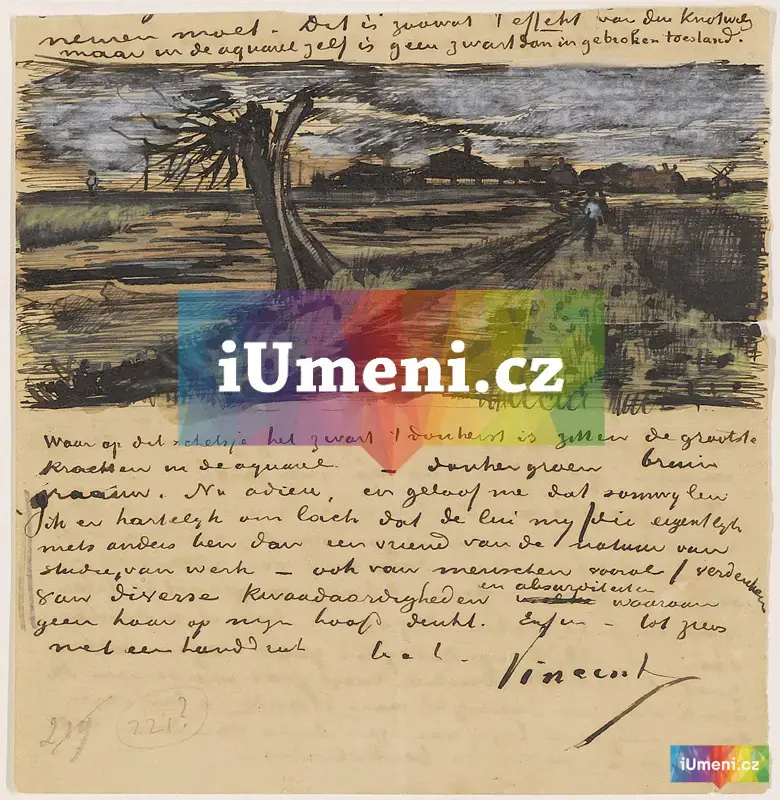 nemen moet. Dit is zoowat 't effekt van den Knotwilg
maar in de aquarel zelf is geen zwart dan in gebroken toestand.
iUmeni.cz
Waar op dit schetsje het zwart 't donkerst is zitten de grootste
krachten in de aquarel – donkergroen bruin
graauw. Nu adieu, en geloof me dat somwylen
ik er hartelyk om lach dat de lui my /die eigentlyk
niets anders ben dan een vriend van de natuur van
studie, van werk – ook van menschen vooral/ verdenken
van diverse kwaadaardigheden en absurditeiten waaraan
geen haar op myn hoofd denkt. Enfin – tot ziens
met een handdruk b. à t. Vincent
219 221?
iUmeni.cz